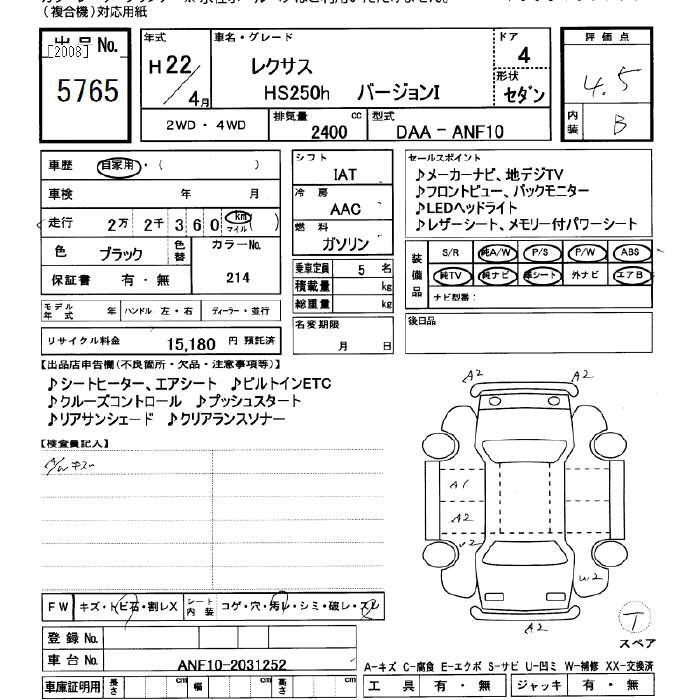 (複合機)対応用紙
出品No.
[2008]
5765
年式
H22/4月
車名・グレード
レクサス
HS250h バージョンI
ドア
4
形状
セダン
評価点
4.5
内装
B
2WD・4WD
排気量
2400 cc
型式
DAA-ANF10
車歴 自家用・( )
車検 年 月
走行 2万 2千 3 6 0 km マイル( )
色 ブラック
色替
カラーNo.
214
保証書 有・無
モデル年式 年
ハンドル 左・右
ディーラー・並行
リサイクル料金 15,180 円 預託済
シフト
IAT
冷房
AAC
燃料
ガソリン
乗車定員 5 名
積載量 kg
総重量 kg
名変期限
月 日
セールスポイント
♪メーカーナビ、地デジTV
♪フロントビュー、バックモニター
♪LEDヘッドライト
♪レザーシート、メモリー付パワーシート
装備品
S/R 純A/W P/S P/W ABS
純TV 純ナビ 革シート 外ナビ エアB
ナビ型番:
後日品
【出品店申告欄(不良箇所・欠品・注意事項等)】
♪シートヒーター、エアシート ♪ビルトインETC
♪クルーズコントロール ♪プッシュスタート
♪リアサンシェード ♪クリアランスソナー
【検査員記入】
A/Wキズ
A2 A2
A1
A2
U2
W2
A2
T
スペア
FW キズ・トビ石・割レX
シート内装 コゲ・穴・汚レ・シミ・破レ・スレ
登録No.
車台No. ANF10-2031252
車庫証明用 長さ cm 幅 cm 高さ cm
A-キズ C-腐食 E-エクボ S-サビ U-凹ミ W-補修 XX-交換済
工具 有・無 ジャッキ 有・無